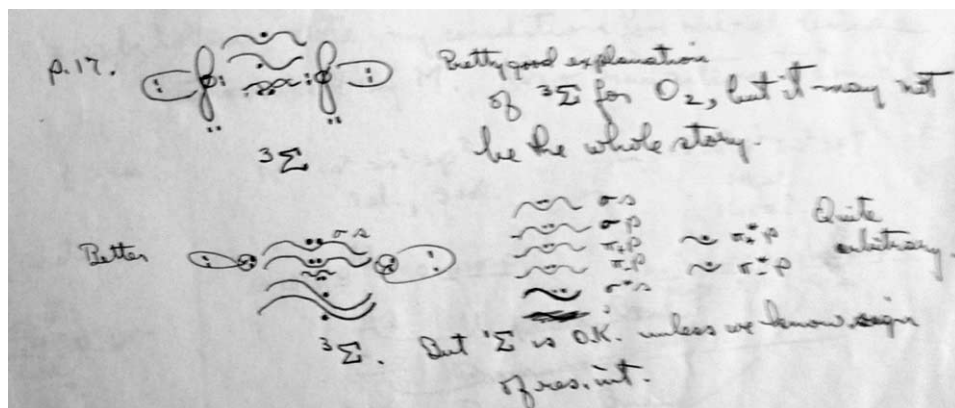 p. 17.
Pretty good explanation
of ³Σ for O₂, but it may not
be the whole story.
³Σ
Better
σs
σs
σp
π₊p
π₋p
σ*s
π₊*p
π₋*p
Quite
arbitrary.
³Σ. But ¹Σ is O.K. unless we know sign
of res. int.